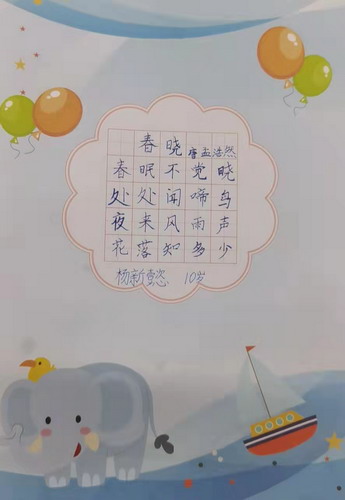 春晓 唐孟浩然
春眠不觉晓
处处闻啼鸟
夜来风雨声
花落知多少
杨新懿 10岁